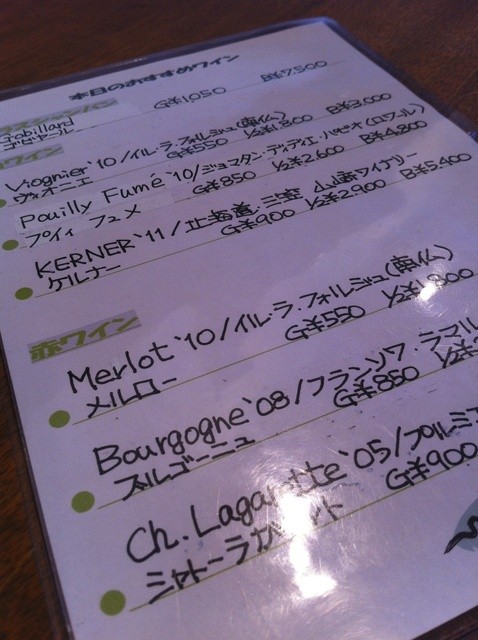 本日のおすすめワイン
Gobillard G¥1,050 B¥7,500
ゴビヤール
Viognier '10/イル・ラ・フォルジュ(南仏)
ヴィオニエ G¥550 1/2¥1,800 B¥3,000
Pouilly Fumé '10/ジョナタン・ディディエ・パビオ(ロワール)
プイィ フュメ G¥850 1/2¥2,600 B¥4,800
KERNER '11/北海道・三笠 山﨑ワイナリー
ケルナー G¥900 1/2¥2,900 B¥5,400
赤ワイン
Merlot '10/イル・ラ・フォルジュ(南仏)
メルロー G¥550 1/2¥1,800
Bourgogne '08/フランソワ・ラマル
ブルゴーニュ G¥850 1/2
Ch. Lagarette '05/プルミエ
シャトー・ラガレット G¥900